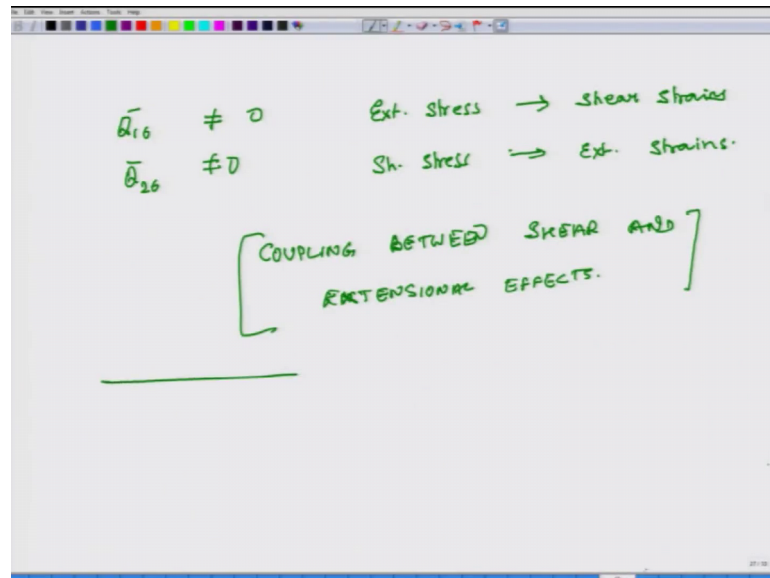 File Edit View Insert Actions Tools Help
Q̄₁₆ ≠ 0 Ext. Stress → Shear Strains
Q̄₂₆ ≠ 0 Sh. Stress → Ext. Strains.
[COUPLING BETWEEN SHEAR AND
EXTENSIONAL EFFECTS.]